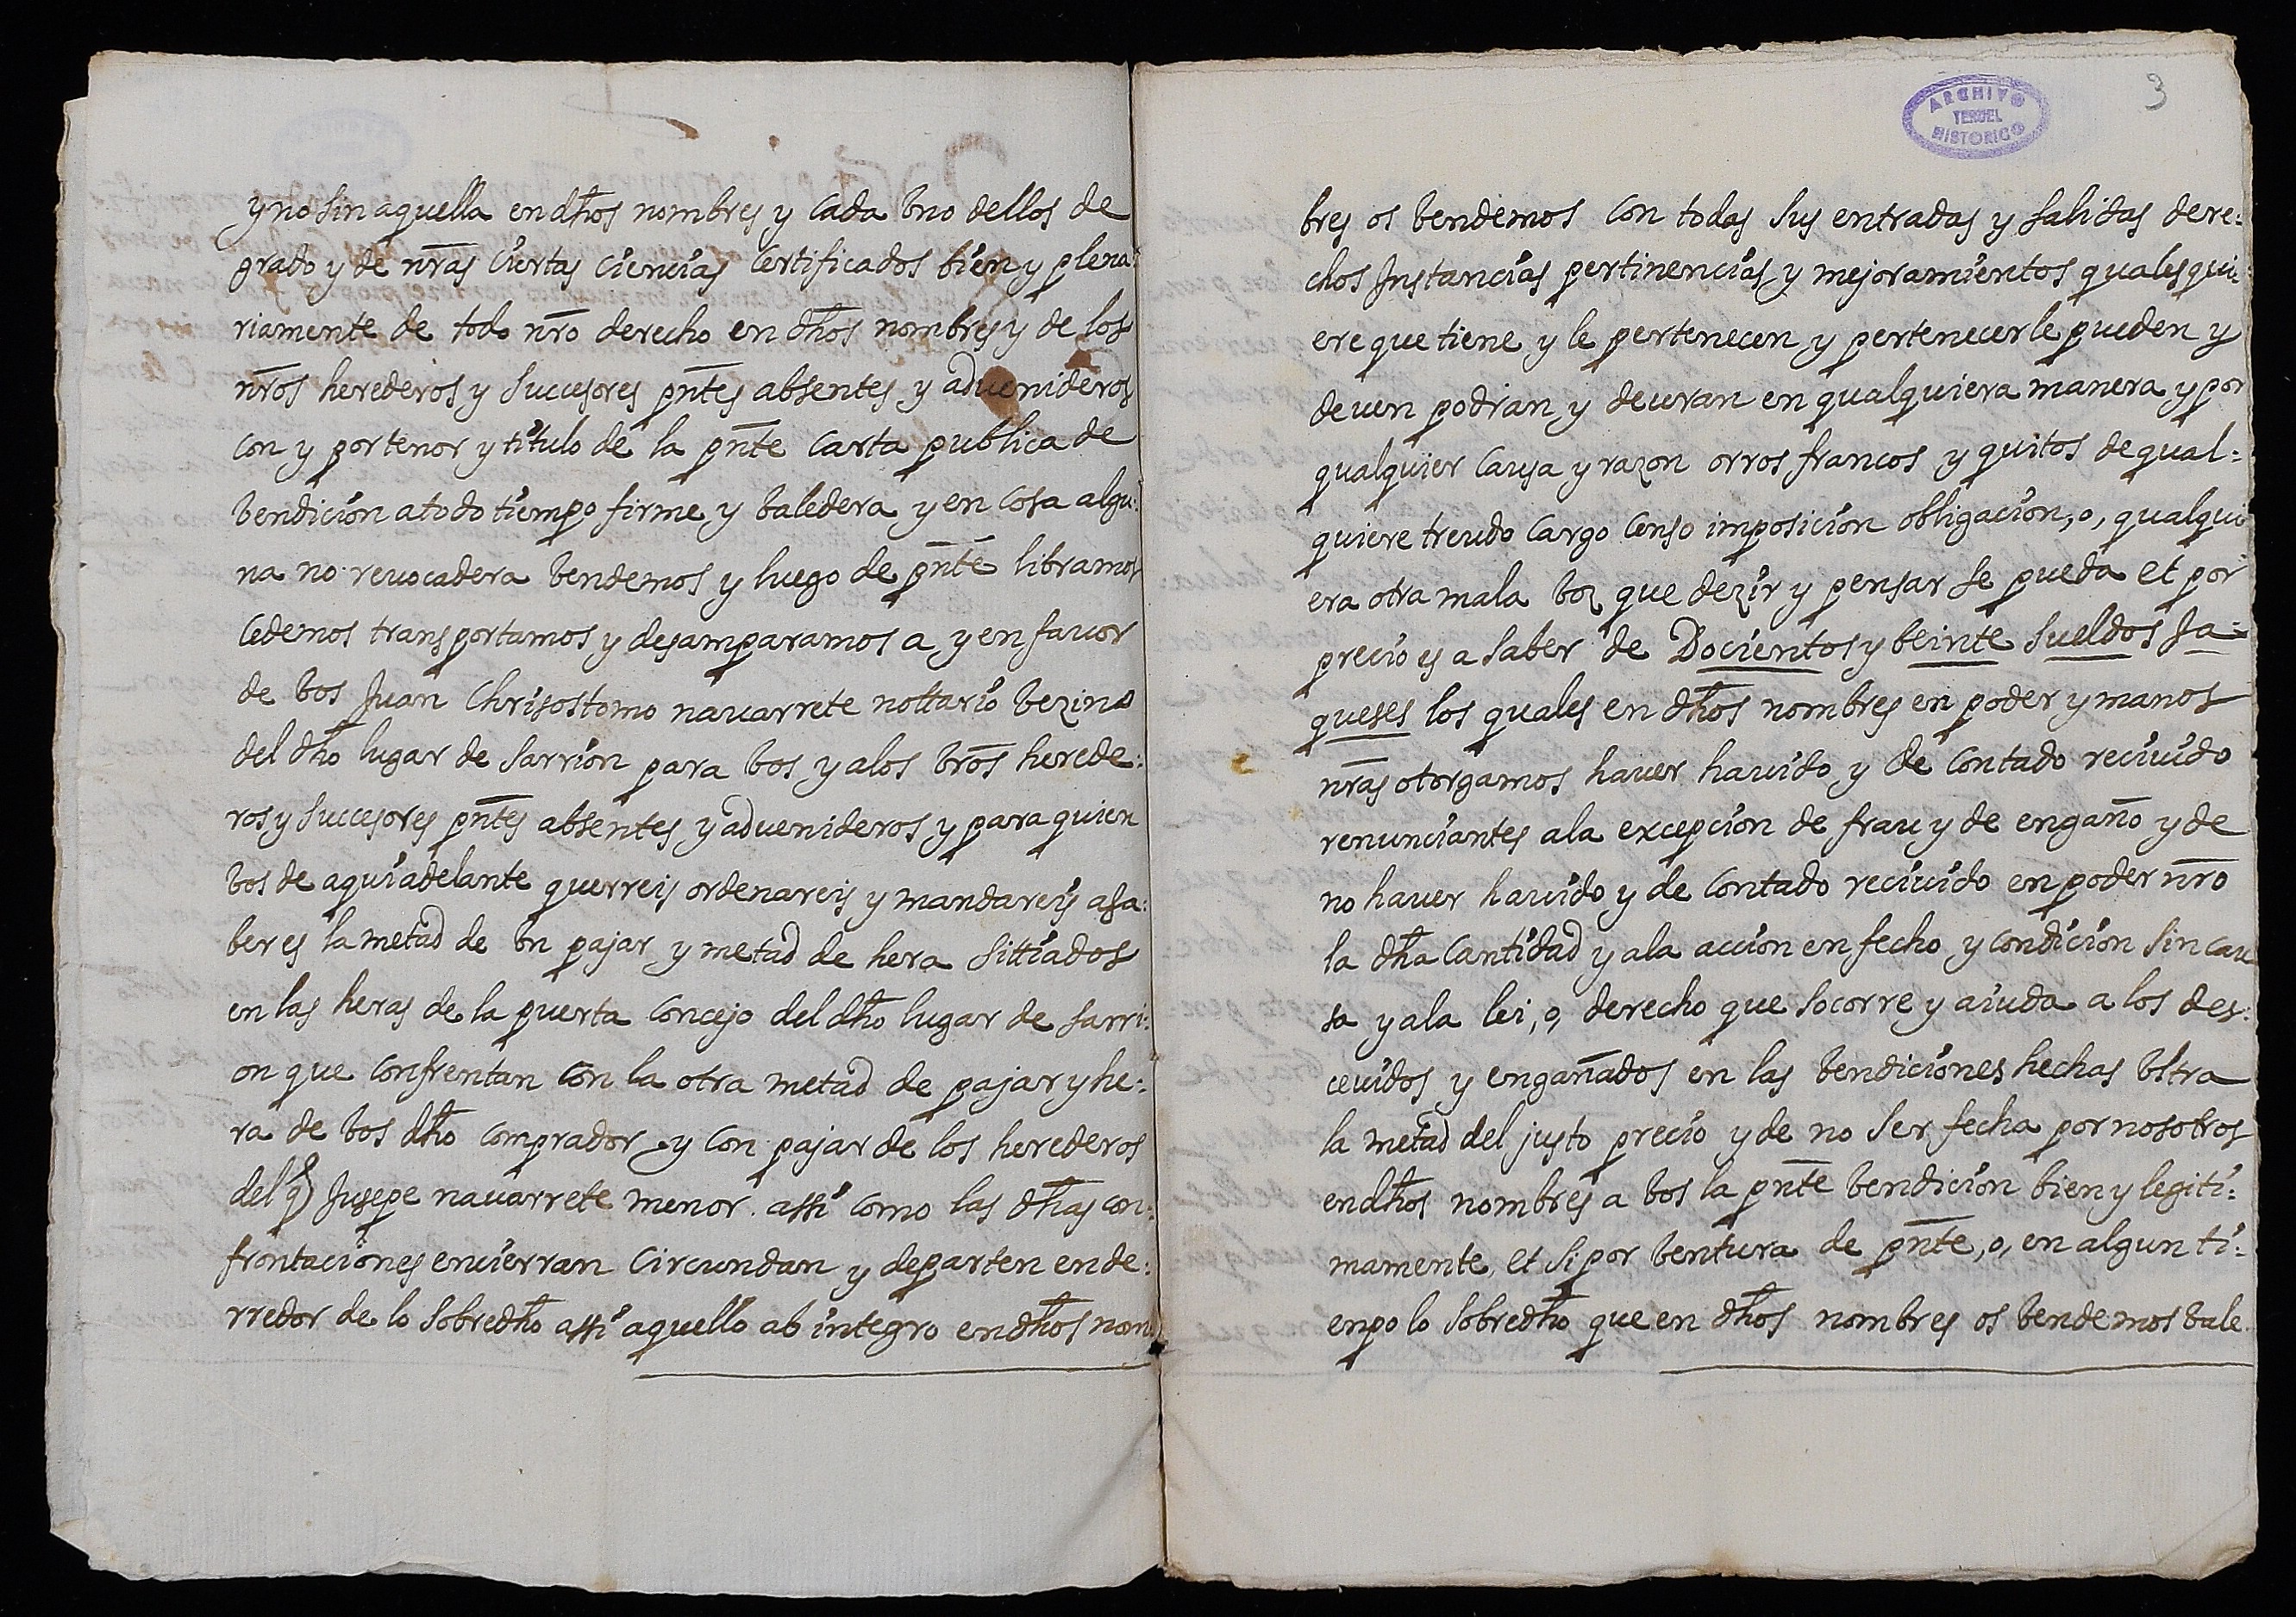 y no sin aquella en dhos nombres y cada bno dellos de
grado y de nras ciertas ciencias certificados bien y plena
riamente de todo nro derecho en dhos nombres y de los
nros herederos y succesores pntes absentes y aduenideros
con y por tenor y titulo de la pnte carta publica de
bendicion a todo tiempo firme y baledera y en cosa algu:
na no reuocadera bendemos y luego de pnte libramos
cedemos transportamos y desamparamos a y en fauor
de bos Juan Chrisostomo nauarrete nottario bezino
del dho lugar de sarrion para bos y alos bros herede:
ros y succesores pntes absentes y aduenideros y para quien
bos de aqui adelante querreis ordenareis y mandareis asa:
ber es la metad de bn pajar y metad de hera sittiados
en las heras de la puerta concejo del dho lugar de sarri:
on que confrentan con la otra metad de pajar y he:
ra de bos dho comprador y con pajar de los herederos
del q Jusepe nauarrete menor assi como las dhas con:
frontaciones encierran circundan y departen en de:
rredor de lo sobredho assi aquello ab integro en dhos nom
3
ARCHIVO
TERUEL
HISTORICO
bres os bendemos con todas sus entradas y salidas dere:
chos Instancias pertinencias y mejoramientos qualesqui:
ere que tiene y le pertenecen y pertenecerle pueden y
deuen podran y deuran en qualquiera manera y por
qualquier causa y razon orros francos y quitos de qual:
quiere treudo cargo censo imposicion obligacion, o, qualqui
era otra mala boz que dezir y pensar se pueda et por
precio es a saber de Docientos y beinte sueldos Ja:
queses los quales en dhos nombres en poder y manos
nras otorgamos hauer hauido y de contado reciuido
renunciantes ala excepcion de frau y de engaño y de
no hauer hauido y de contado reciuido en poder nro
la dha cantidad y ala accion en fecho y condicion sin cau
sa y ala lei, o, derecho que socorre y aiuda a los des:
ceuidos y engañados en las bendiciones hechas bltra
la metad del justo precio y de no ser fecha por nosotros
en dhos nombres a bos la pnte bendicion bien y legiti:
mamente, et si por bentura de pnte, o, en algun ti:
enpo lo sobredho que en dhos nombres os bendemos bale